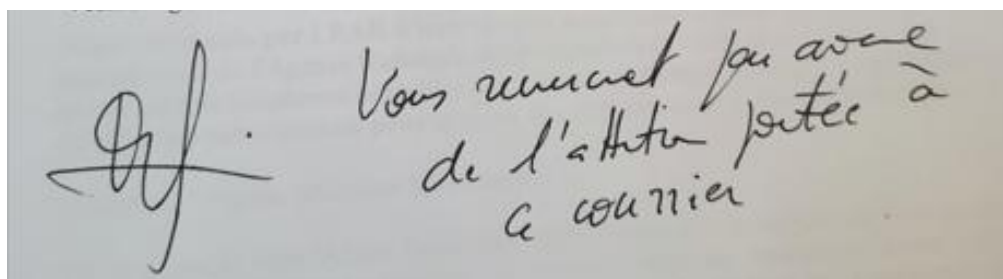 Vous remerciant par avance
de l'attention portée à
ce courrier